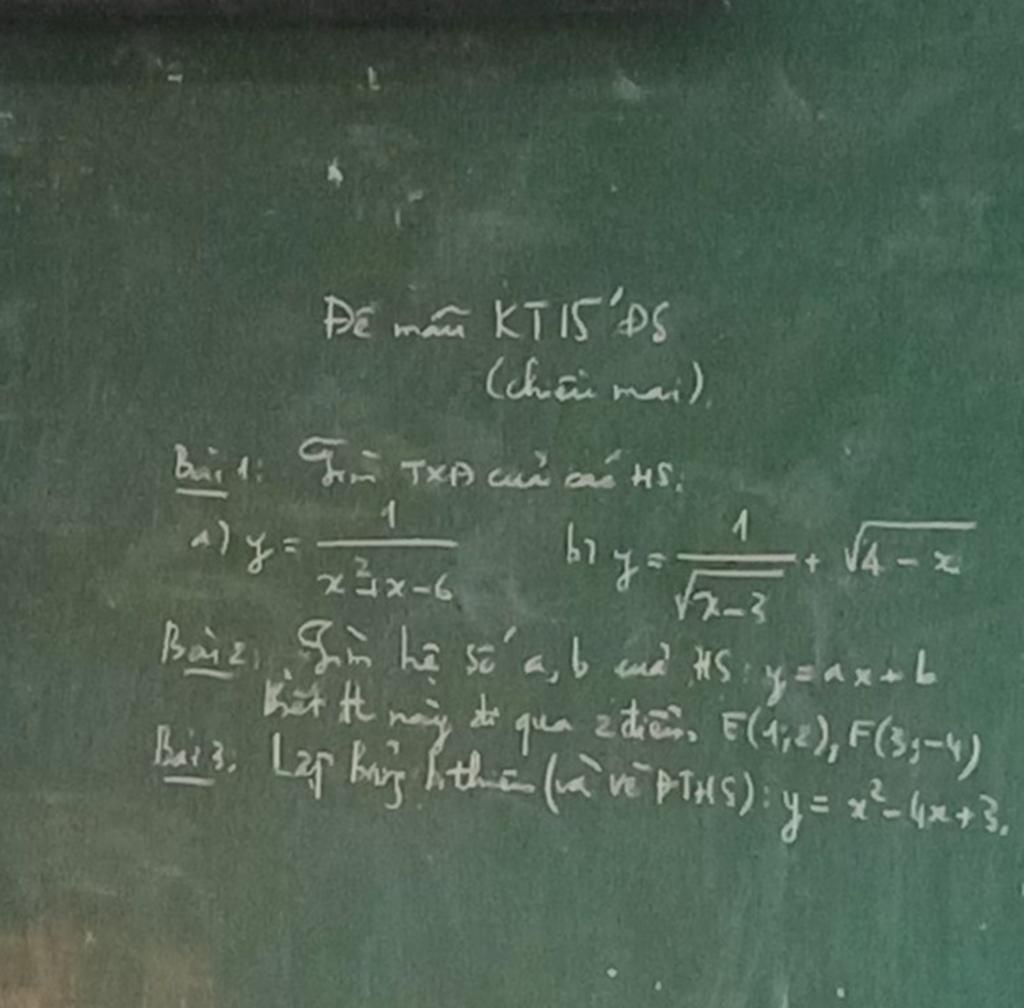 Đề mẫu KT 15' ĐS
(chiều mai).
Bài 1: Tìm TXĐ của các HS:
a) y = 1/(x² + x - 6) b) y = 1/√(x - 3) + √(4 - x)
Bài 2: Tìm hệ số a, b của HS: y = ax + b
Biết đt này đi qua 2 điểm E(1;2), F(3;-4)
Bài 3. Lập bảng b.thiên (và vẽ ĐTHS): y = x² - 4x + 3.